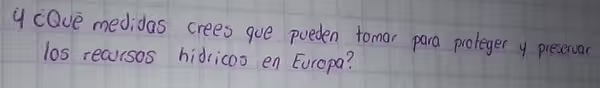 4 ¿Qué medidas crees que pueden tomar para proteger y preservar
los recursos hídricos en Europa?